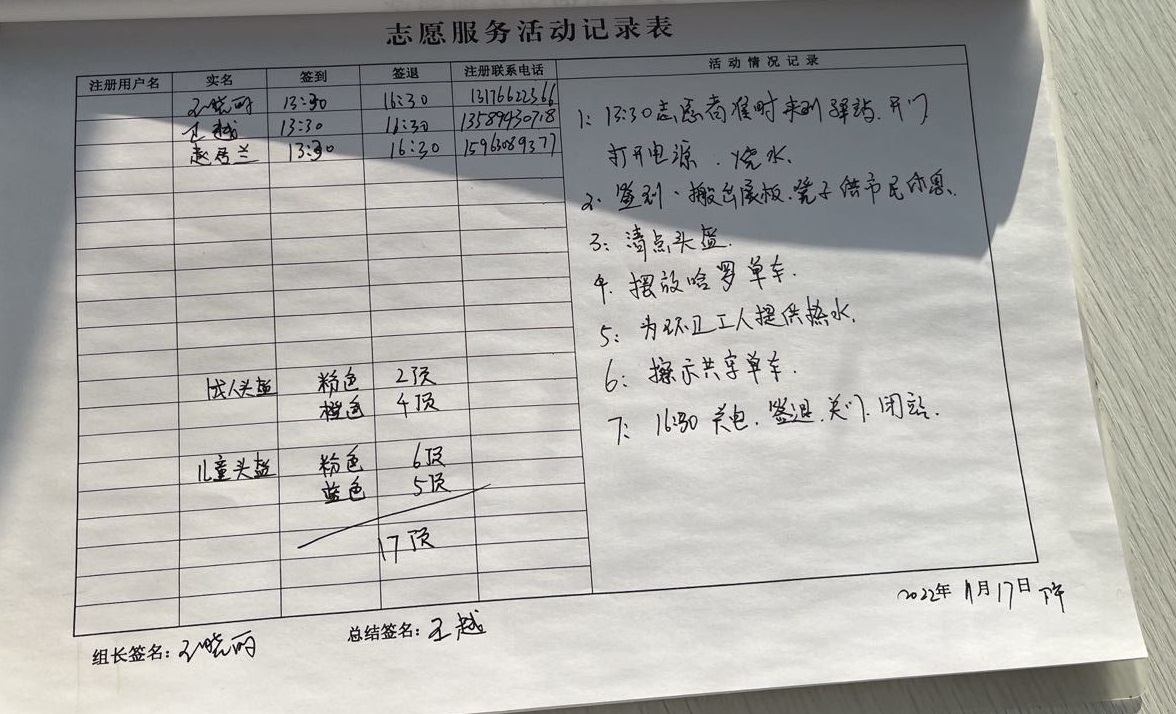 志愿服务活动记录表
注册用户名 实名 签到 签退 注册联系电话 活动情况记录
王晓丽 13:30 16:30 13176622566
王越 13:30 16:30 13589430718
赵居兰 13:30 16:30 15963089377
成人头盔 粉色 2顶
橙色 4顶
儿童头盔 粉色 6顶
蓝色 5顶
17顶
1: 13:30志愿者准时来到驿站.开门
打开电源.烧水.
2. 签到.搬出展板.凳子供市民休息.
3: 清点头盔.
4. 摆放哈罗单车.
5: 为环卫工人提供热水.
6: 擦示共享单车.
7: 16:30 关电.签退.关门.闭站.
2022年 11月17日 下午
组长签名: 王晓丽 总结签名: 王越